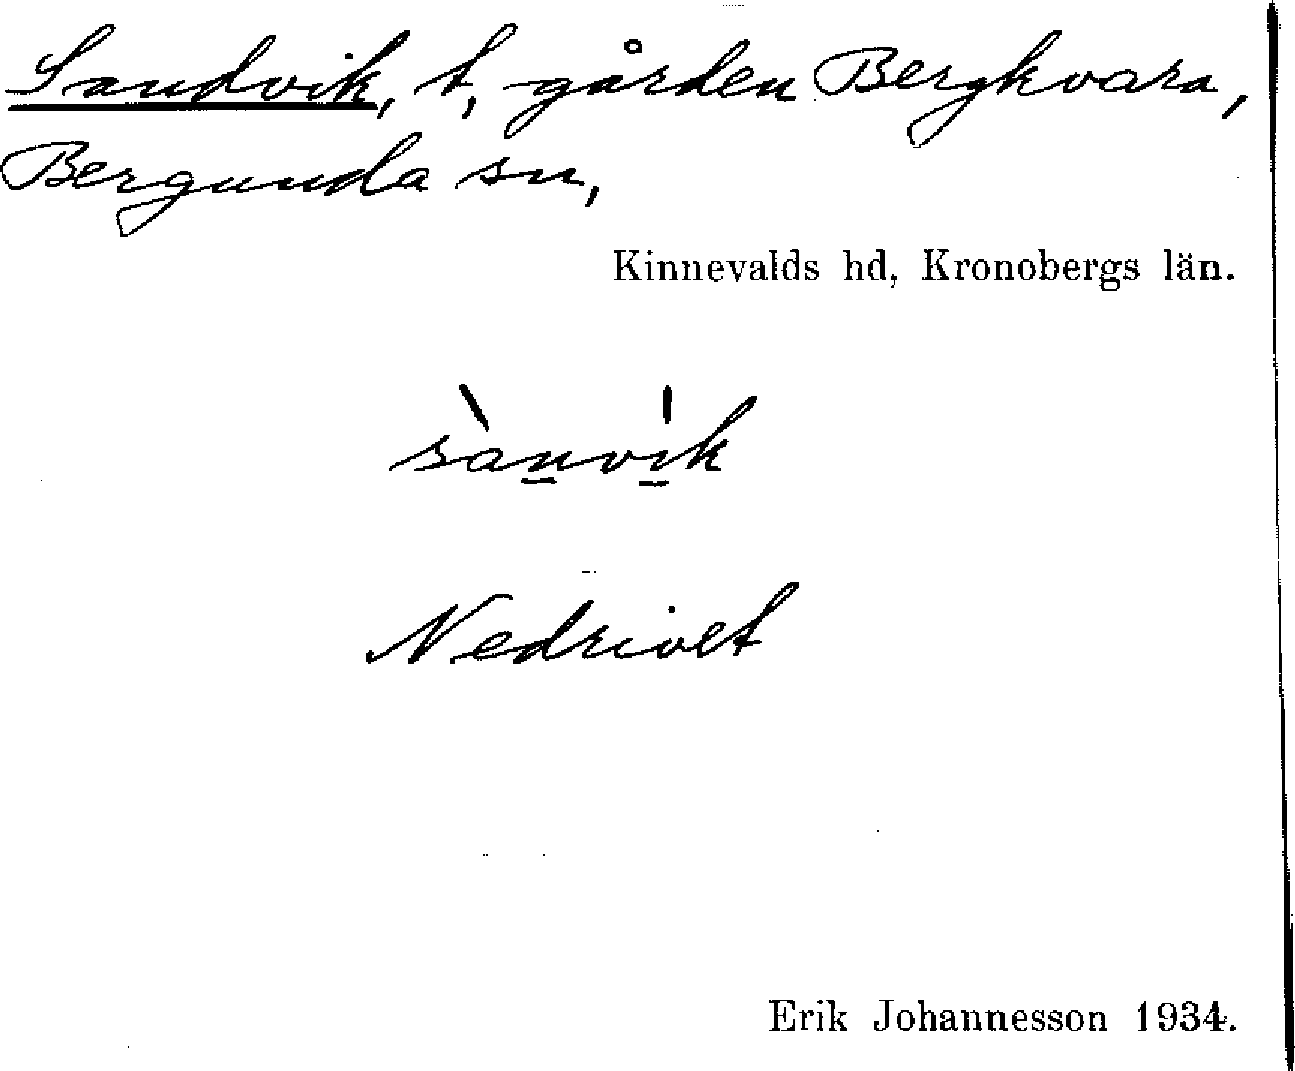 Sandvik, t, gården Bergkvara,
Bergunda sn,
Kinnevalds hd, Kronobergs län.
sànvi̍k
Nedrivet
Erik Johannesson 1934.